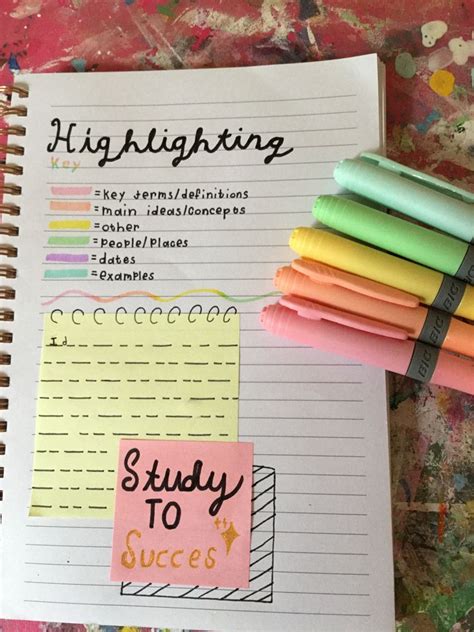 Highlighting
Key
=Key terms/definitions
=main ideas/concepts
=other
=people/places
=dates
=examples
Id
Study
TO
Succes
BIC
BIC
BIC